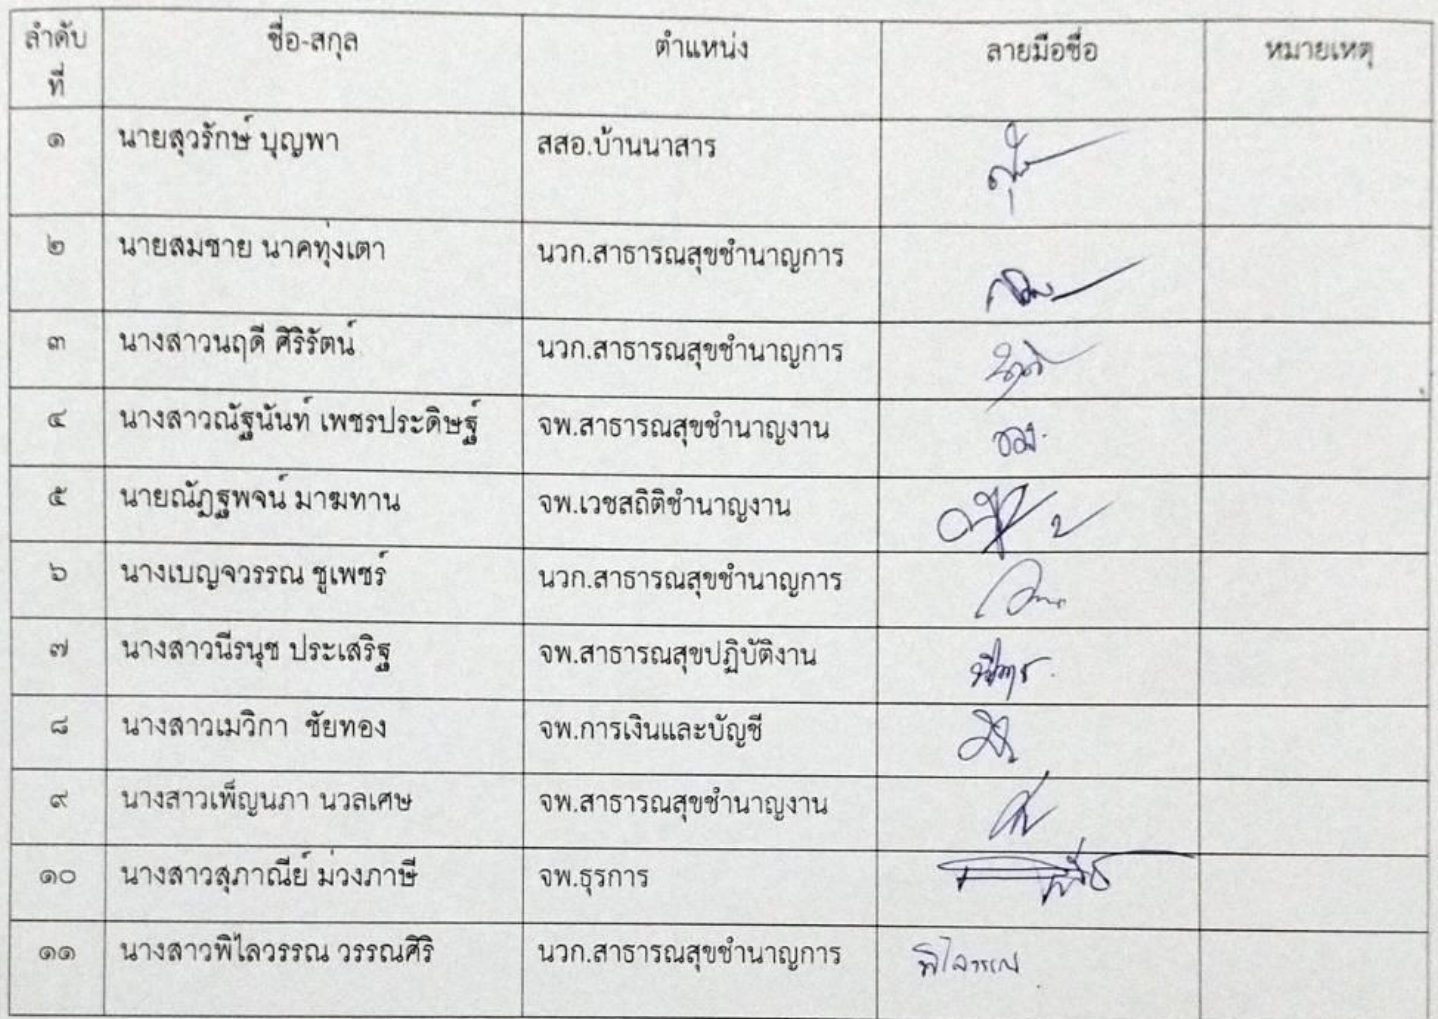 ลำดับ ชื่อ-สกุล ตำแหน่ง ลายมือชื่อ หมายเหตุ
ที่
๑ นายสุวรักษ์ บุญพา สสอ.บ้านนาสาร
๒ นายสมชาย นาคทุ่งเตา นวก.สาธารณสุขชำนาญการ
๓ นางสาวนฤดี ศิริรัตน์ นวก.สาธารณสุขชำนาญการ
๔ นางสาวณัฐนันท์ เพชรประดิษฐ์ จพ.สาธารณสุขชำนาญงาน
๕ นายณัฏฐพจน์ มาฆทาน จพ.เวชสถิติชำนาญงาน
๖ นางเบญจวรรณ ชูเพชร์ นวก.สาธารณสุขชำนาญการ
๗ นางสาวนีรนุช ประเสริฐ จพ.สาธารณสุขปฏิบัติงาน
๘ นางสาวเมวิกา ชัยทอง จพ.การเงินและบัญชี
๙ นางสาวเพ็ญนภา นวลเศษ จพ.สาธารณสุขชำนาญงาน
๑๐ นางสาวสุภาณีย์ ม่วงภาษี จพ.ธุรการ
๑๑ นางสาวพิไลวรรณ วรรณศิริ นวก.สาธารณสุขชำนาญการ พิไลวรรณ